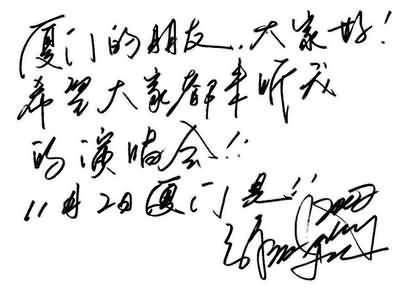 厦门的朋友，大家好！
希望大家都来听我
的演唱会！！
11月2日厦门见！！